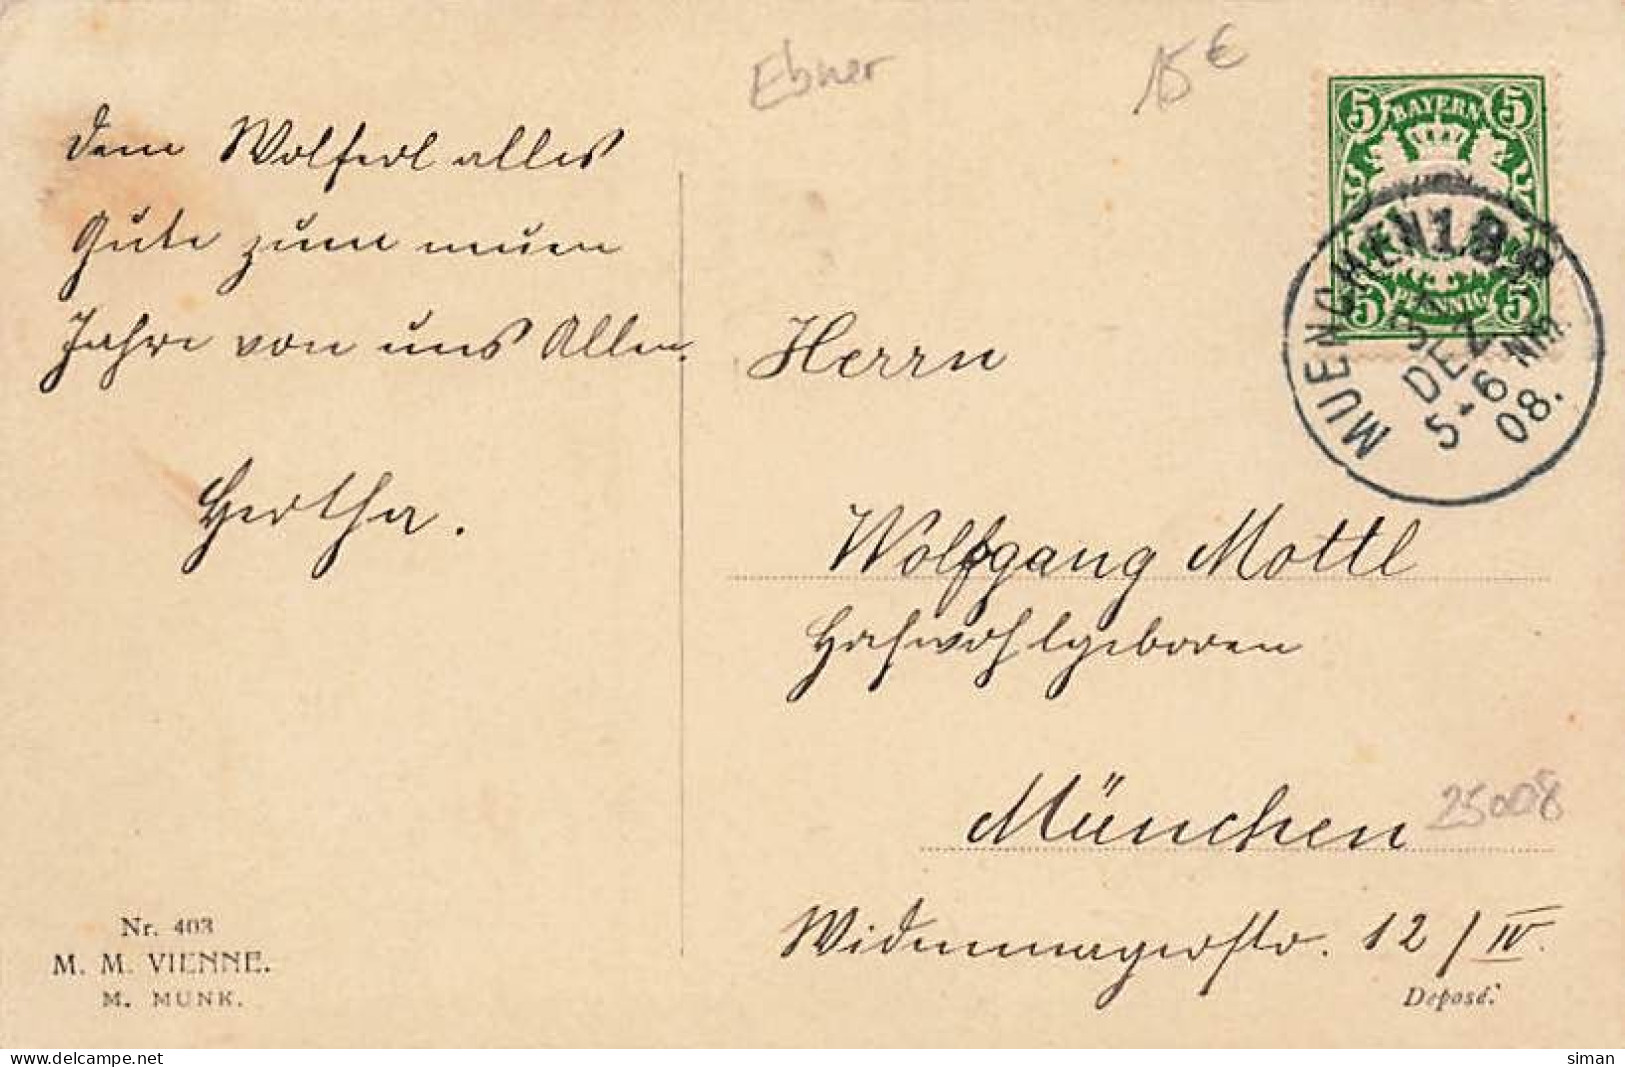 Ebner
15 €
Dem Wolferl alles
Gute zum neuen
Jahre von uns Allen.
Hertha.
5 BAYERN 5
5 PFENNIG 5
MUENCHEN 1.B.P.
31
DEZ
5-6 NM
08.
Herrn
Wolfgang Mottl
Hochwohlgeboren
München
25008
Widenmayerstr. 12/IV.
Nr. 403
M. M. VIENNE.
M. MUNK.
Deposé.
delcampe.net
siman